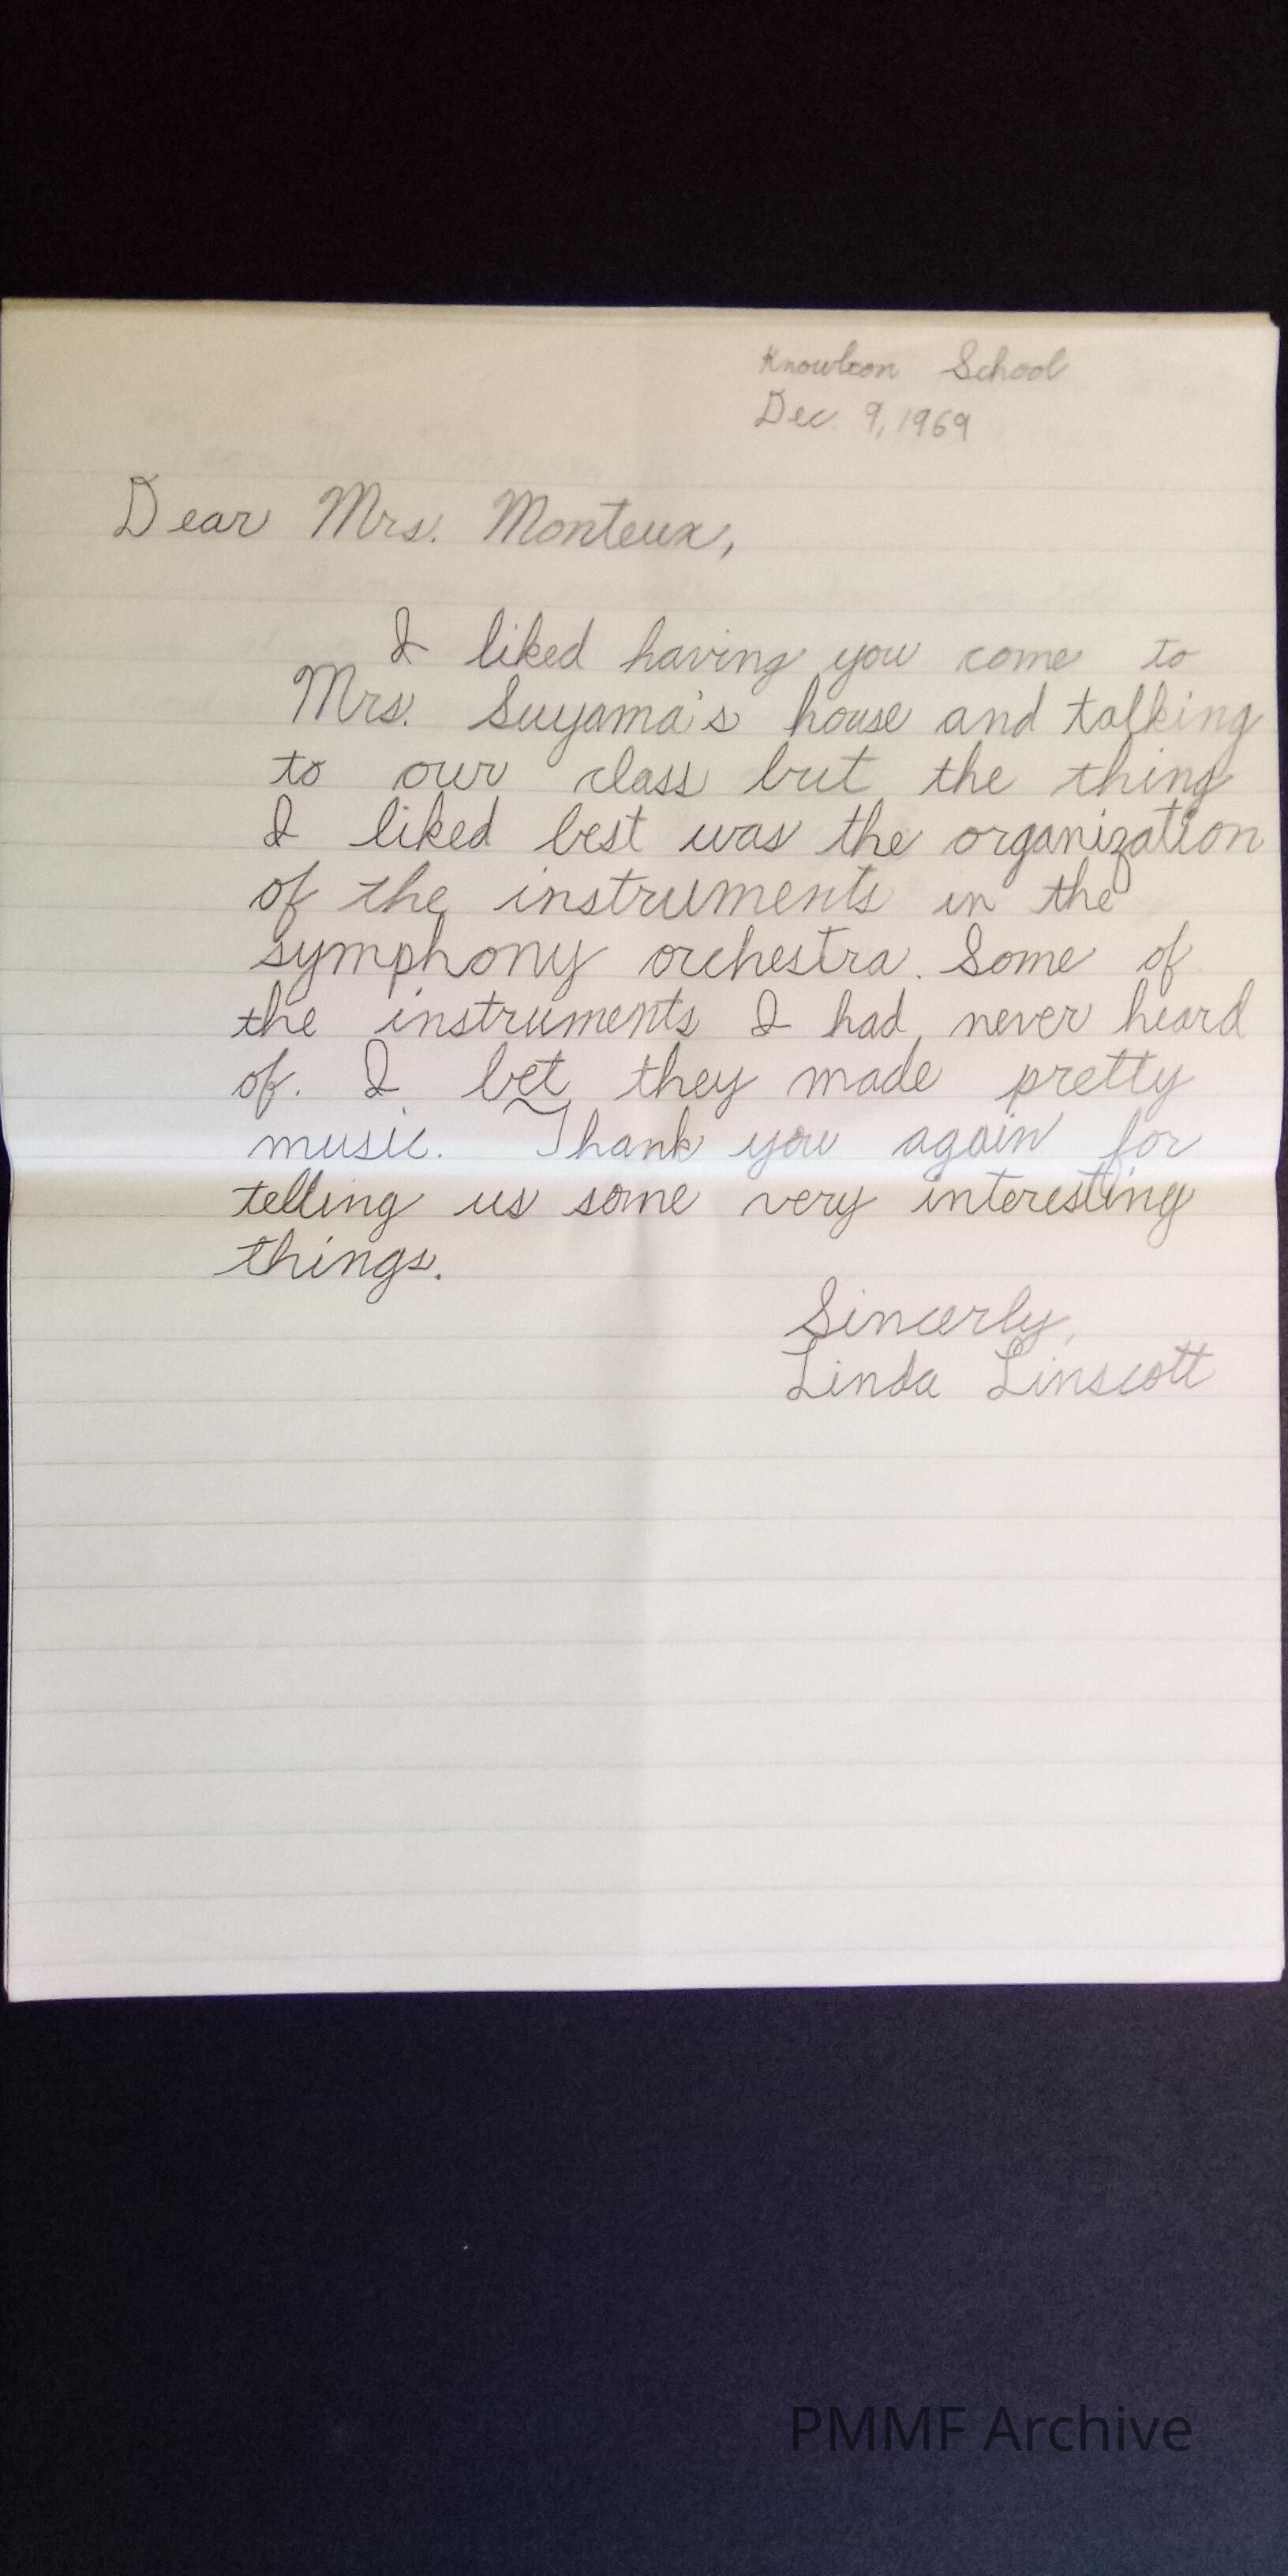 Knowlton School
Dec 9, 1969
Dear Mrs. Monteux,
I liked having you come to
Mrs. Suyama's house and talking
to our class but the thing
I liked best was the organization
of the instruments in the
symphony orchestra. Some of
the instruments I had never heard
of. I bet they made pretty
music. Thank you again for
telling us some very interesting
things.
Sincerly,
Linda Linscott
PMMF Archive